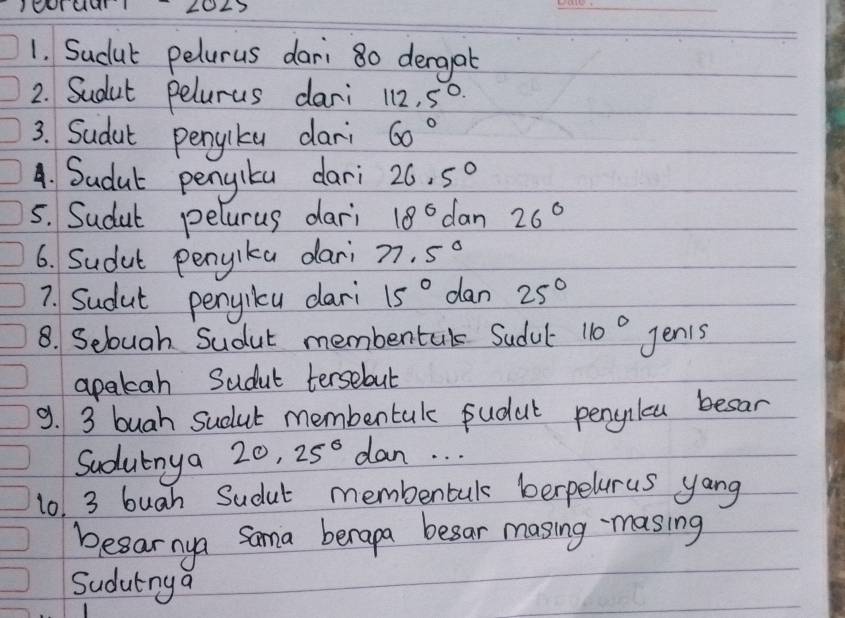 2025
1. Sudut pelurus dari 80 dergat
2. Sudut pelurus dari 112,5°.
3. Sudut penyiku dari 60°
4. Sudut penyiku dari 26,5°
5. Sudut pelurus dari 18° dan 26°
6. Sudut penyiku dari 77,5°
7. Sudut penyiku dari 15° dan 25°
8. Sebuah Sudut membentuk Sudut 110° jenis
apakah Sudut tersebut
9. 3 buah sudut membentuk sudut penyiku besar
Sudutnya 20, 25° dan ...
10. 3 buah Sudut membentuk berpelurus yang
besarnya sama berapa besar masing-masing
Sudutnya